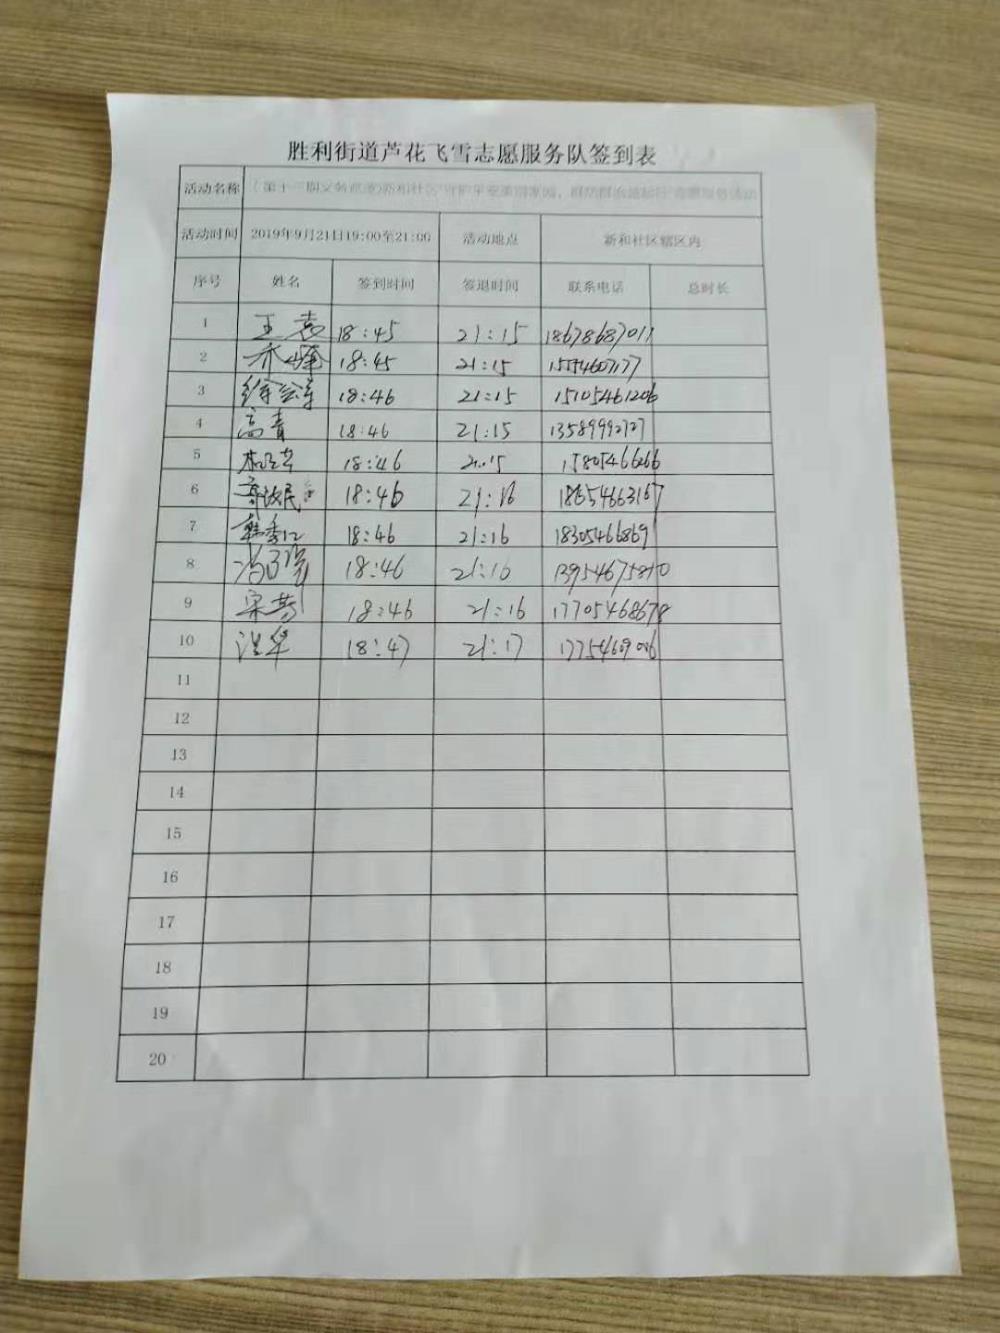 胜利街道芦花飞雪志愿服务队签到表
活动名称
活动时间 2019年9月21日19:00至21:00 活动地点 新和社区辖区内
序号 姓名 签到时间 签退时间 联系电话 总时长
1 王袁 18:45 21:15 18678687011
2 乔峰 18:45 21:15
3 18:46 21:15 15105461206
4 高青 18:46 21:15
5 18:46 21:15 15805466266
6 18:46 21:16 18654663167
7 韩季江 18:46 21:16 18305466869
8 18:46 21:16
9 宋芬 18:46 21:16 17705468678
10 18:47 21:17
11
12
13
14
15
16
17
18
19
20